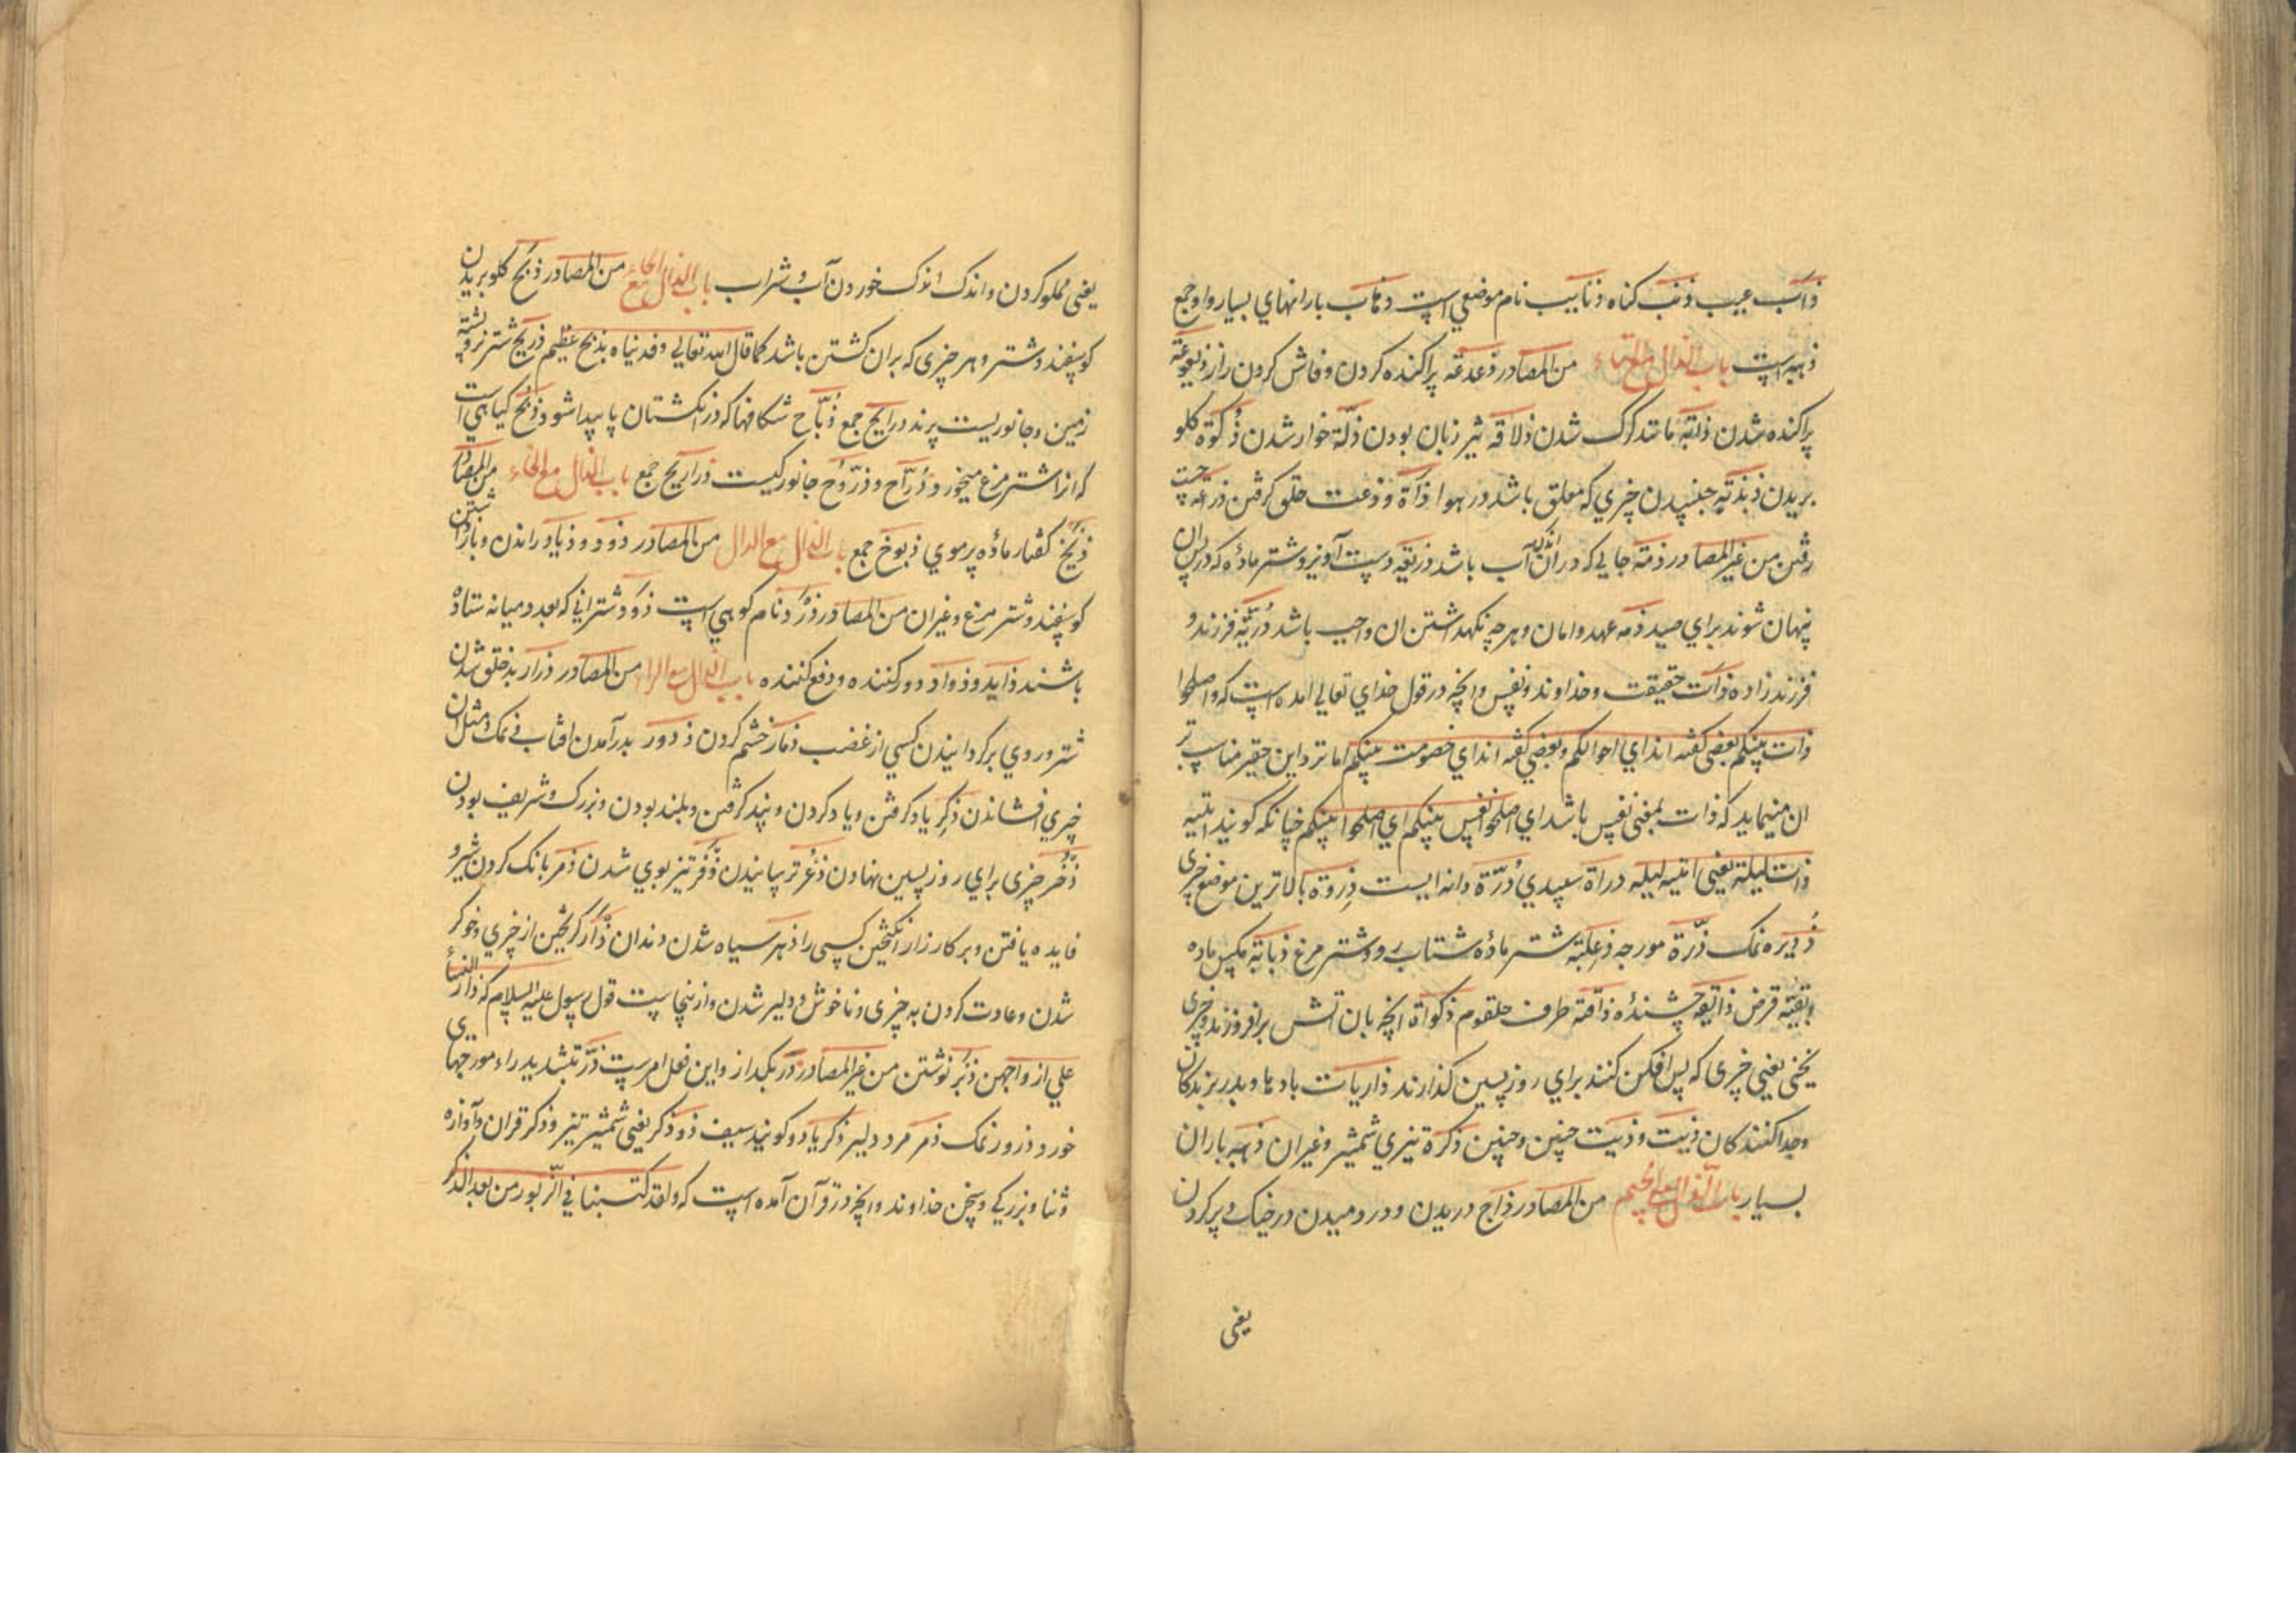 ذأب عیب ذنب کناه ذنایب نام موضعی است ذهاب بارانهاي بسیار واو جمع
ذهبه است باب الذال مع التاء من المصادر ذعذعة پراکنده کردن و فاش کردن راز
پراکنده شدن مانند کرک شدن ذلاقة تیز زبان بودن ذلّة خوار شدن ذکوة کلو
بریدن ذبذبة جنبیدن چیزي که معلق باشد در هوا ذأة و ذعت حلق کرفتن
رفتن من غیر المصادر ذمة جایی که دران اندک آب باشد ذریعة دست آویز و شتر ماده که در پس ان
پنهان شوند براي صید ذمه عهد و امان و هرچه نکهداشتن ان واجب باشد ذریّة فرزند و
فرزند زاده ذات حقیقت و خداوند و نفس وانچه در قول خداي تعالی امده است که واصلحوا
ذات بینکم بعضی کفته اند اي احوالکم و بعضي کفته اند اي خصومت بینکم اما نزد این حقیر مناسب تر
ان مینماید که ذات بمعنی نفس باشد اي اصلحوا نفس بینکم اي اصلحوا بینکم چنانکه کویند اتیته
ذات لیلة یعنی اتیته لیله ذرأة سپیدي ذرّة دانه ایست ذروة بالاترین موضع چیزی
ذریره نمک ذرّة مورچه ذعلبة شتر ماده شتاب رو و شتر مرغ ذبابة مکس ماده
و بقیّه قرض ذایقة چشنده ذاقنة طرف حلقوم ذکوأة انچه بان اتش برافروزند و چیزی
یخنی یعنی چیزی که پس افکن کنند براي روز پسین کذارند ذاریات بادها و پدر بزرکان
وجدا کنند کان ذیت و ذیت چنین و چنین ذکرة تیزي شمشیر و غیر ان ذهبه باران
بسیار باب الذال مع الجیم من المصادر ذأج دریدن و در دمیدن در خیک و پر کردن
یعنی
یعنی مملو کردن و اندک اندک خوردن آب و شراب باب الذال مع الحاء من المصادر ذبح کلو بریدن
کوسفند و شتر و هر چیزی که بران کشتن باشد کما قال الله تعالی وفدیناه بذبح عظیم ذریح شتر نر و پشته
زمین و جانوریست پرند ذرایح جمع ذبّاح شکافها که در انکشتان پا پیدا شود و ذبح کیاهی است
که انرا شتر مرغ میخورد و ذرّاح و ذرّوح جانورکیست ذراریح جمع باب الذال مع الخاء من المصادر
ذیخ کفتار ماده پر موي ذیوخ جمع باب الذال مع الدال من المصادر ذود و ذیاد راندن و باز داشتن
کوسفند و شتر مرغ و غیر ان من المصادر ذرود نام کوهی است ذود شترانی که بعدد میانه ستا ده
باشند ذاید و ذواد دور کننده و دفع کننده باب الذال مع الراء من المصادر ذرار بد خلق شدن
شتر و روي بر کردانیدن کسي از غضب ذمار خشم کردن ذرور بدر آمدن افتاب و نمک و مثل ان
چیزي افشاندن ذکر یاد کرفتن و یاد کردن و پند کرفتن و بلند بودن و بزرک و شریف بودن
ذخر چیزی براي روز پسین نهادن ذعر ترسانیدن ذفر تیز بوي شدن ذمر بانک کردن شیر و
فایده یافتن و بر کارزار انکیختن کسی را ذهر سیاه شدن دندان ذأر کریختن از چیزي و خوکر
شدن و عادت کردن به چیزی و ناخوش و دلیر شدن و از ینجاست قول رسول علیه السلام که ذأر النساء
علي ازواجهن ذبر نوشتن من غیر المصادر ذر بکذار و این فعل امر ست ذرّ بتشدید راء مورچهای
خورد و ذرور نمک ذمر مرد دلیر ذکر یاد و کویند سیف ذو ذکر یعنی شمشیر تیز و ذکر قران و آوازه
وثنا و بزرکي و سخن خداوند و انچه در قرآن آمده است که ولقد کتبنا في الزبور من بعد الذکر